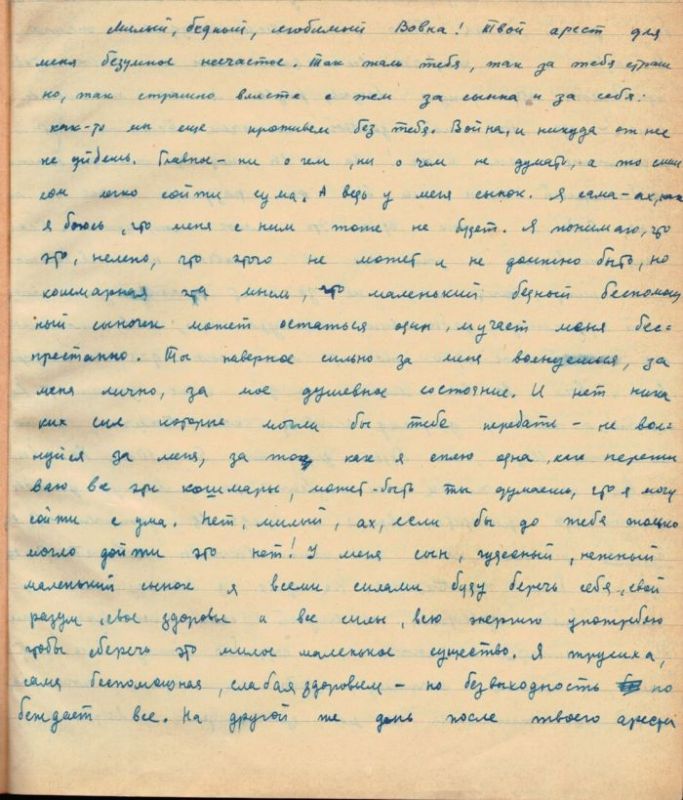 Милый, бедный, любимый Вовка! Твой арест для
меня безумное несчастье. Так жаль тебя, так за тебя страш
но, так страшно вместе с тем за сынка и за себя.
как-то мы еще проживем без тебя. Война, и никуда от нее
не уйдешь. Главное – ни о чем, ни о чем не думать, а то
легко сойти с ума. А ведь у меня сынок. Я сама – ах, как
я боюсь, что меня с ним тоже не будет. Я понимаю, что
это, нелепо, что этого не может и не должно быть, но
кошмарная эта мысль, что маленький бедный беспомощ
ный сыночек может остаться один, мучает меня бес=
престанно. Ты наверное сильно за меня волнуешься, за
меня лично, за мое душевное состояние. И нет ника
ких сил которые могли бы тебе передать – не вол=
нуйся за меня, за то, как я сплю одна, как пережи
ваю все эти кошмары, может-быть ты думаешь, что я могу
сойти с ума. Нет, милый, ах, если бы до тебя только
могло дойти это нет! У меня сын, чудесный, нежный
маленький сынок я всеми силами буду беречь себя, свой
разум, свое здоровье и все силы, всю энергию употреблю
чтобы сберечь это милое маленькое существо. Я трусиха,
сама беспомощная, слабая здоровьем – но безвыходность по
беждает все. На другой же день после твоего ареста